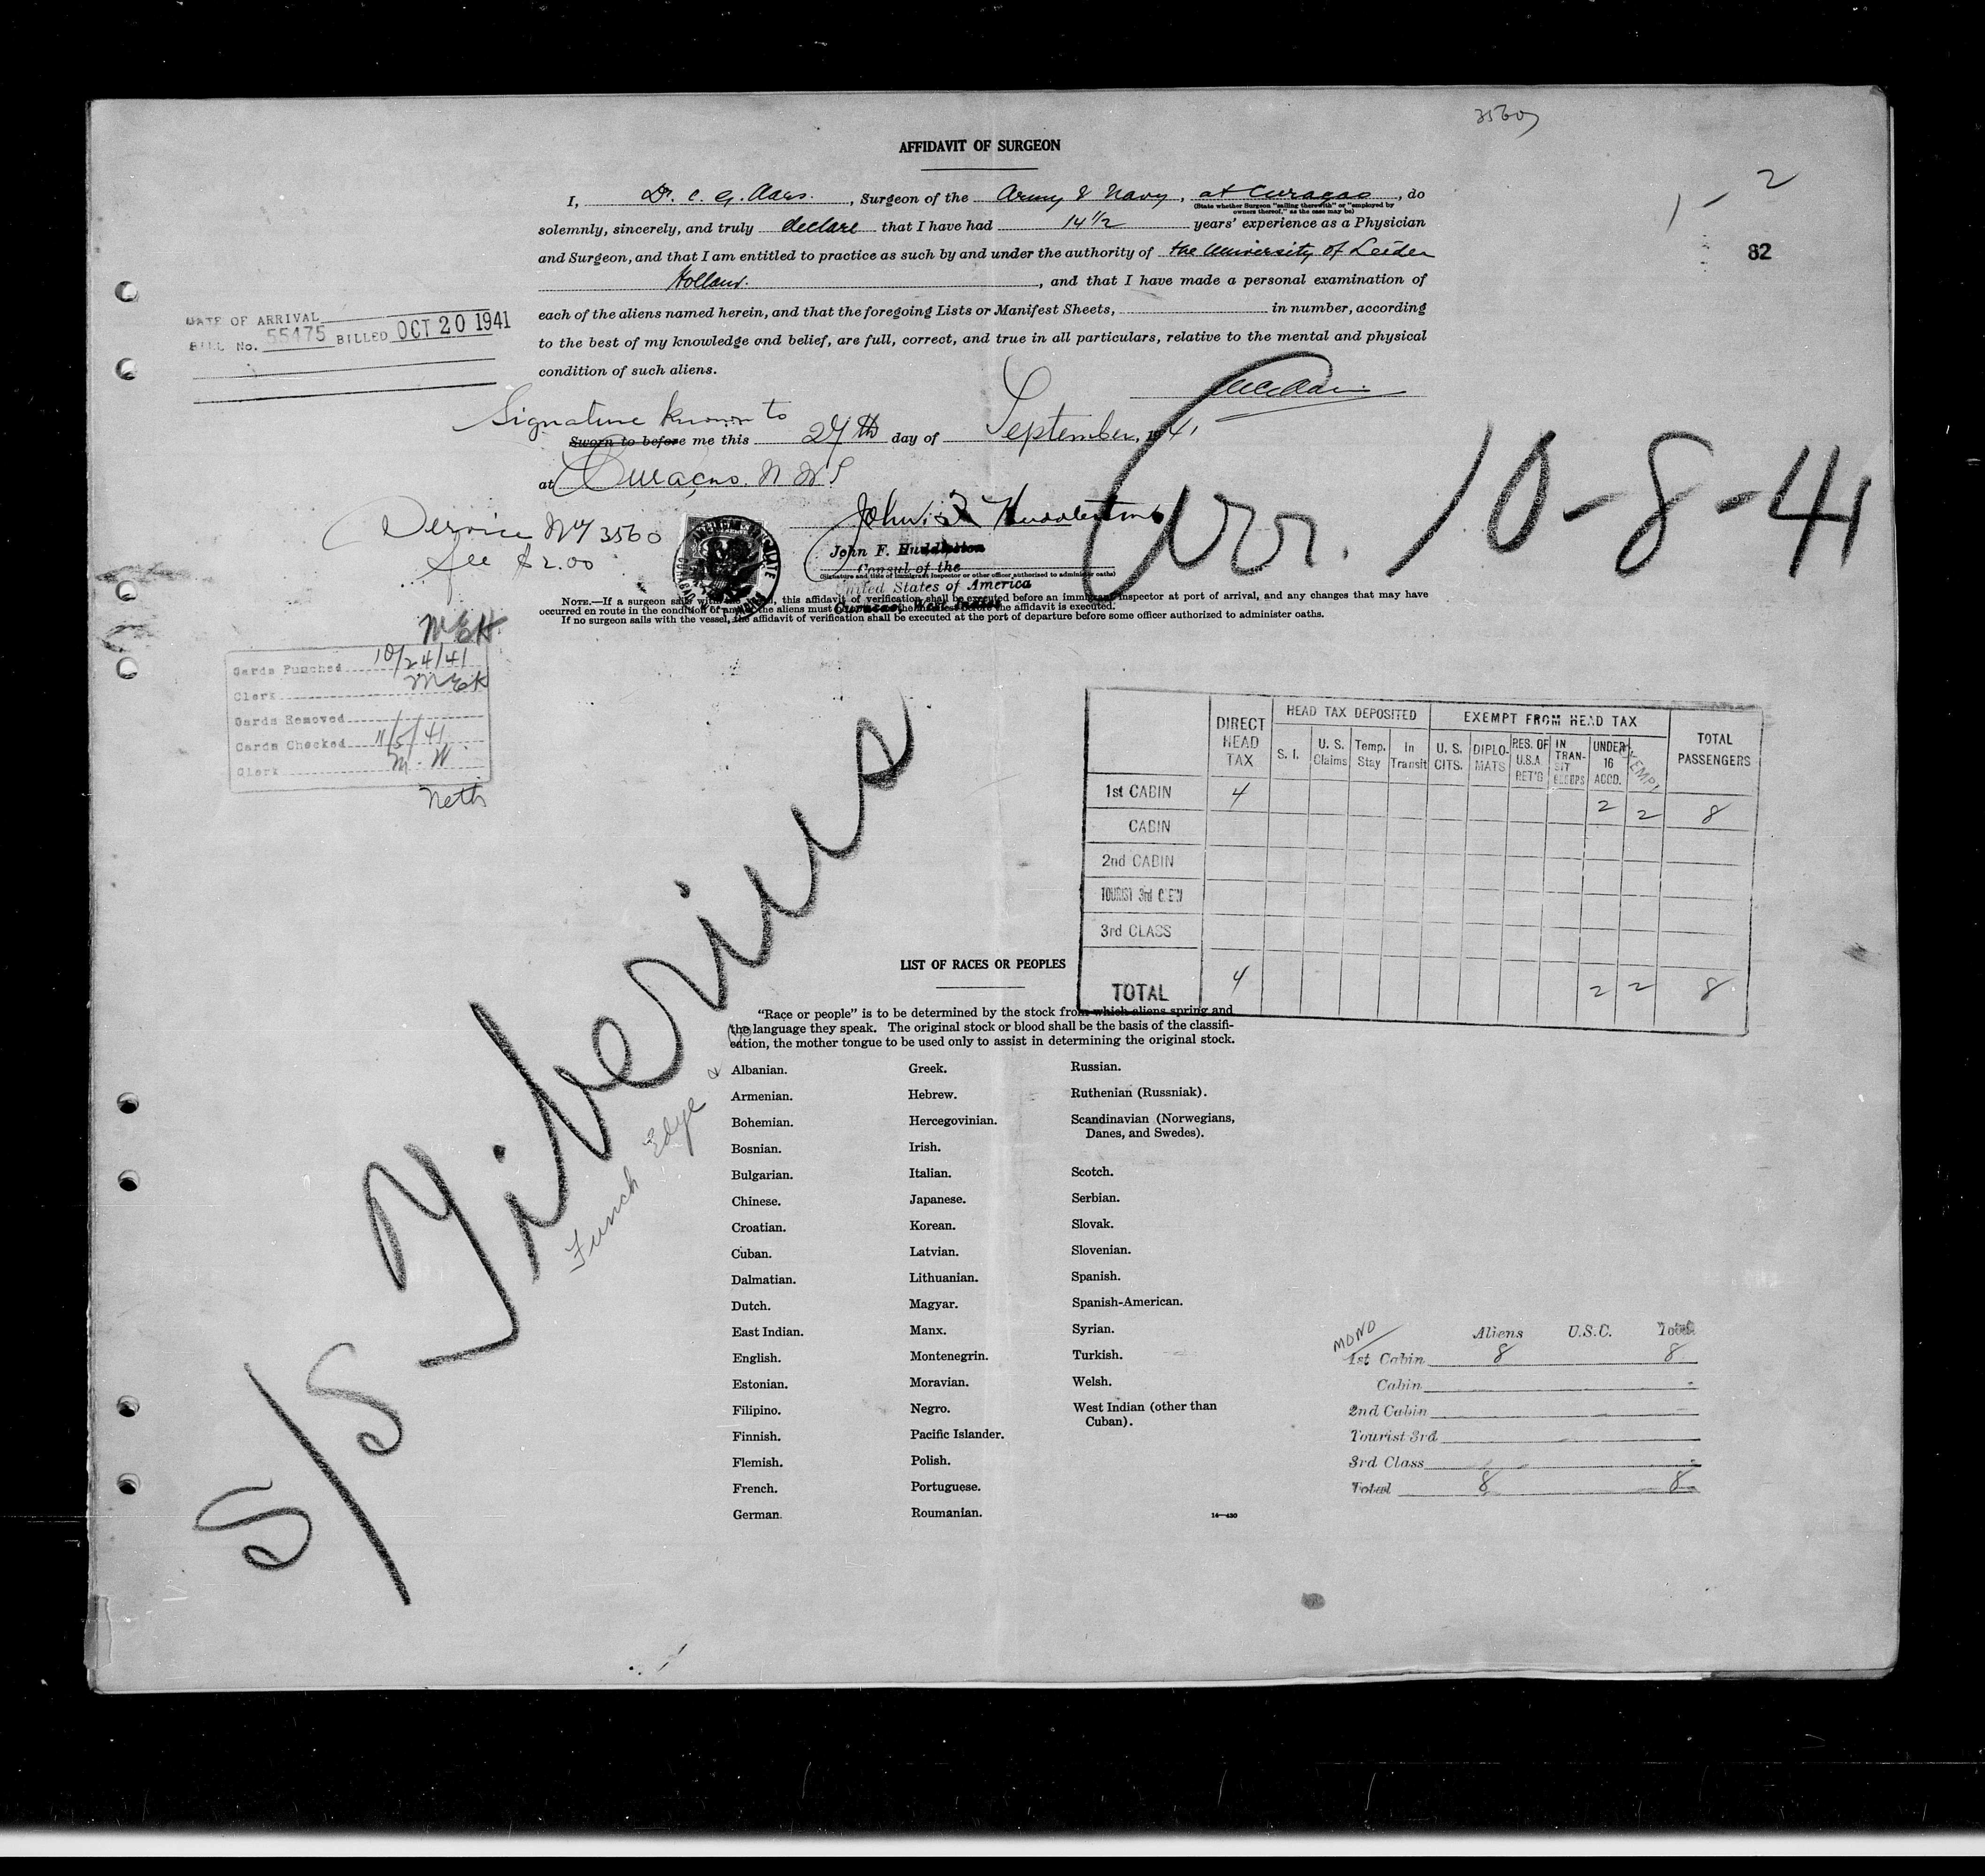 3560
AFFIDAVIT OF SURGEON
I, Dr. C. G. Aars., Surgeon of the Army & Navy, at Curaçao, do
(State whether Surgeon "sailing therewith" or "employed by owners thereof," as the case may be)
solemnly, sincerely, and truly declare that I have had 14 1/2 years' experience as a Physician
and Surgeon, and that I am entitled to practice as such by and under the authority of the University of Leiden
Holland., and that I have made a personal examination of
each of the aliens named herein, and that the foregoing Lists or Manifest Sheets, in number, according
to the best of my knowledge and belief, are full, correct, and true in all particulars, relative to the mental and physical
condition of such aliens.
1 - 2
82
DATE OF ARRIVAL
BILL No. 55475 BILLED OCT 20 1941
Signature known to
Sworn to before me this 27th day of September, 1941
at Curaçao, N.W.I
Arr. 10-8-41
Service No 3560
fee $2.00
AMERICAN CONSULATE
John F. Huddleston
John F. Huddleston
Consul of the
(Signature and title of immigrant inspector or other officer authorized to administer oaths)
United States of America
Curacao, West Indies
NOTE.—If a surgeon sails with the vessel, this affidavit of verification shall be executed before an immigrant inspector at port of arrival, and any changes that may have
occurred en route in the condition of any of the aliens must the manifest before the affidavit is executed.
If no surgeon sails with the vessel, the affidavit of verification shall be executed at the port of departure before some officer authorized to administer oaths.
MEK
Cards Punched 10/24/41
Clerk MEK
Cards Removed
Cards Checked 11/5/41
Clerk M. W.
Neth
DIRECT HEAD TAX
HEAD TAX DEPOSITED
EXEMPT FROM HEAD TAX
TOTAL PASSENGERS
S. I.
U. S. Claims
Temp. Stay
In Transit
U. S. CITS.
DIPLO-MATS
RES. OF U.S.A. RET'G
IN TRAN-SIT GROUPS
UNDER 16 ACCD.
EXEMPT
1st CABIN 4 2 2 8
CABIN
2nd CABIN
TOURIST 3rd
3rd CLASS
TOTAL 4 2 2 8
S/S Tiberius
Funch Edye & Co
LIST OF RACES OR PEOPLES
"Race or people" is to be determined by the stock from which aliens spring and
the language they speak. The original stock or blood shall be the basis of the classifi-
cation, the mother tongue to be used only to assist in determining the original stock.
Albanian.
Armenian.
Bohemian.
Bosnian.
Bulgarian.
Chinese.
Croatian.
Cuban.
Dalmatian.
Dutch.
East Indian.
English.
Estonian.
Filipino.
Finnish.
Flemish.
French.
German.
Greek.
Hebrew.
Hercegovinian.
Irish.
Italian.
Japanese.
Korean.
Latvian.
Lithuanian.
Magyar.
Manx.
Montenegrin.
Moravian.
Negro.
Pacific Islander.
Polish.
Portuguese.
Roumanian.
Russian.
Ruthenian (Russniak).
Scandinavian (Norwegians,
Danes, and Swedes).
Scotch.
Serbian.
Slovak.
Slovenian.
Spanish.
Spanish-American.
Syrian.
Turkish.
Welsh.
West Indian (other than
Cuban).
14—430
MONO
Aliens U.S.C. Total
1st Cabin 8 8
Cabin -
2nd Cabin
Tourist 3rd
3rd Class -
Total 8 8